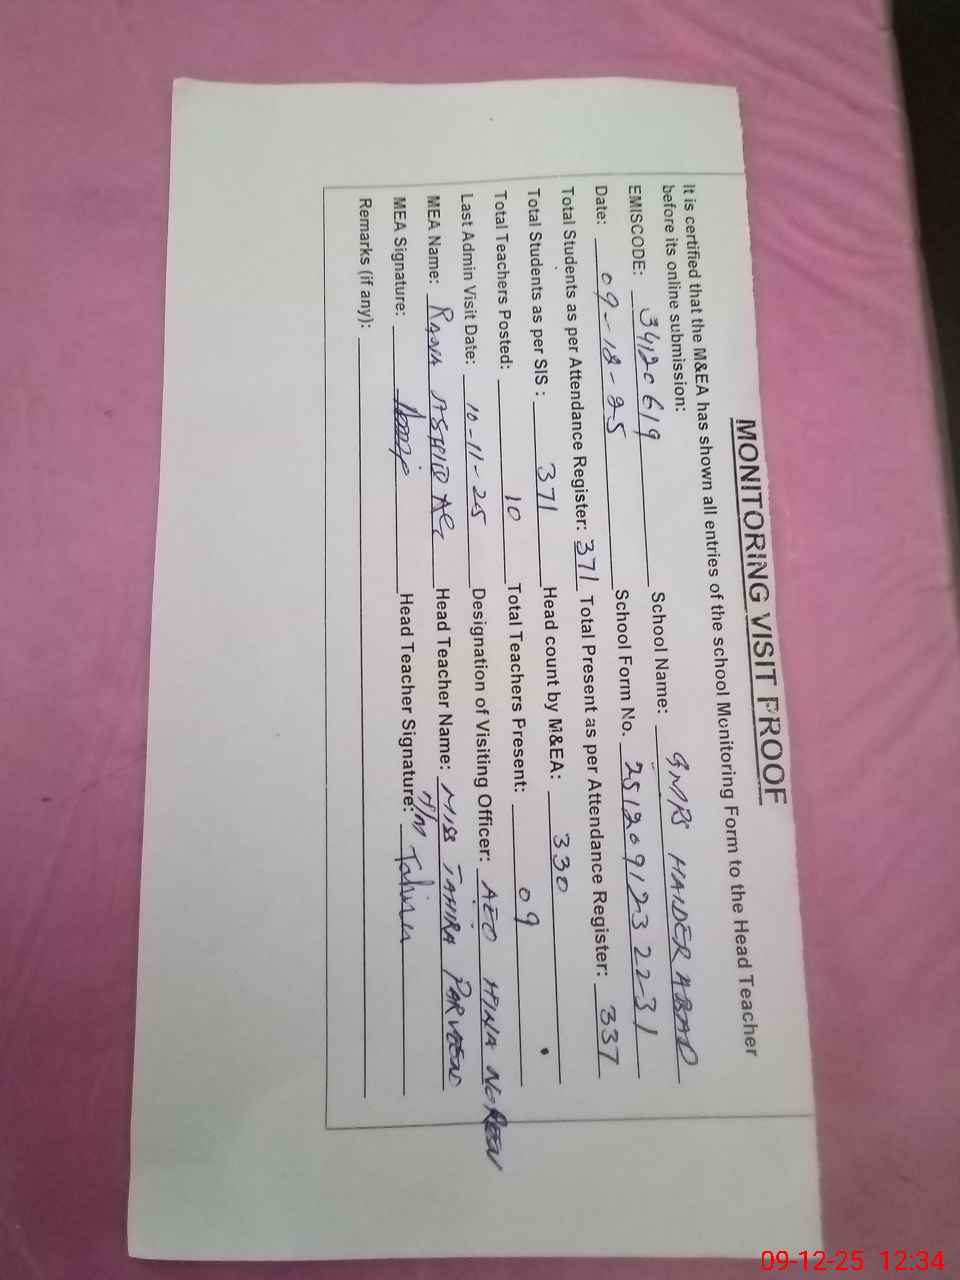 MONITORING VISIT PROOF
It is certified that the M&EA has shown all entries of the school Monitoring Form to the Head Teacher
before its online submission:
EMISCODE: 34120619 School Name: GMPS HAIDER ABAD
Date: 09-12-25 School Form No. 2512091232231
Total Students as per Attendance Register: 371 Total Present as per Attendance Register: 337
Total Students as per SIS: 371 Head count by M&EA: 330
Total Teachers Posted: 10 Total Teachers Present: 09
Last Admin Visit Date: 10-11-25 Designation of Visiting Officer: AEO HINA NOREEN
MEA Name: RANA Head Teacher Name: MISS TAHIRA PARVEEN
MEA Signature: Head Teacher Signature: H/M Tahira
Remarks (if any):
09-12-25 12:34